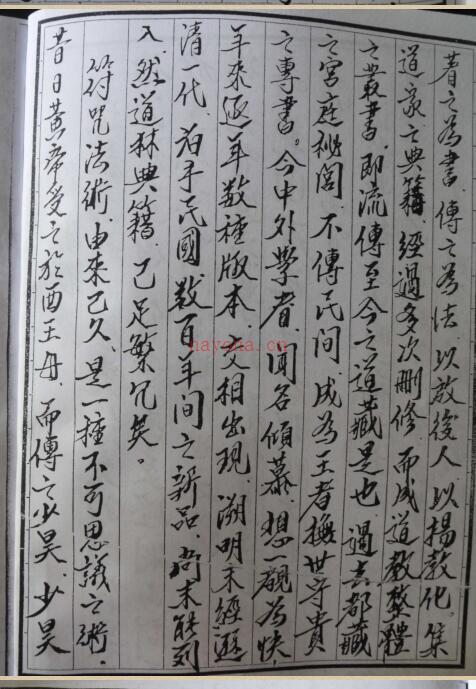 著之為書傳之為法以啟後人以揚教化集
道家之典籍經過多次刪修而成道教整體
之叢書即流傳至今之道藏是也過去都藏
之宮庭秘閣不傳民間成為王者撫世守貴
之專書。今中外學者聞名傾慕想一觀為快
年來逐年數種版本交相出現溯明末經遜
清一代洎乎民國數百年間之新品尚未能列
入然道林典籍已足繁冗矣。
符咒法術由來已久是一種不可思議之術。
昔日黃帝受之於西王母而傳之少昊少昊
haysha.cn